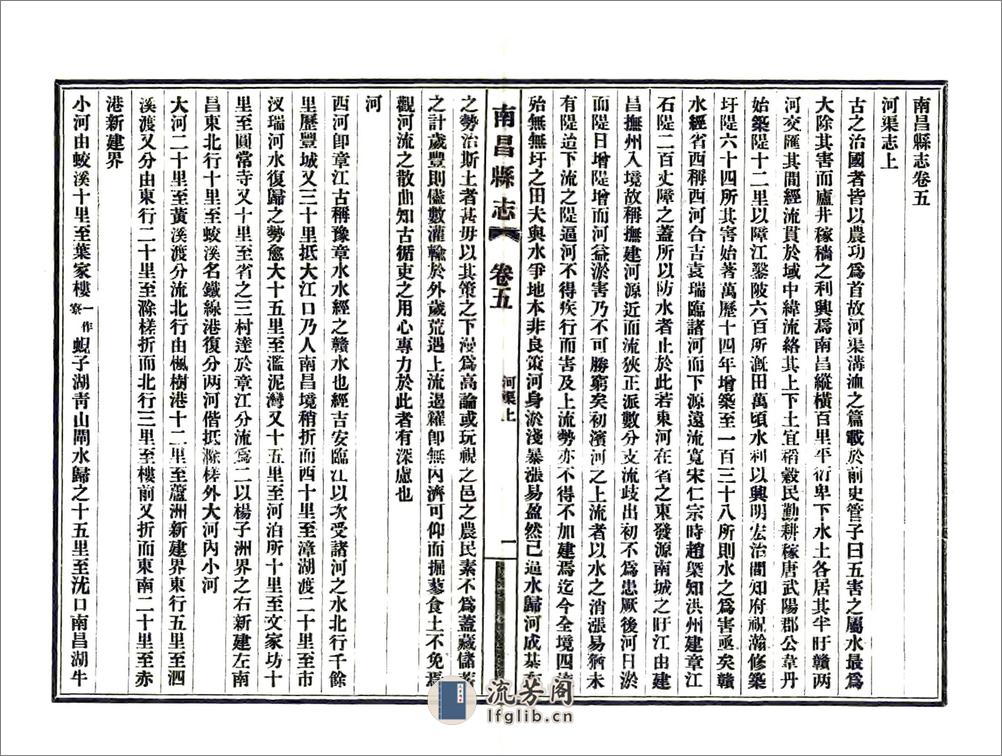 南昌縣志卷五
河渠志上
古之治國者皆以農功爲首故河渠溝洫之篇載於前史管子曰五害之屬水最爲
大除其害而廬井稼穡之利興焉南昌縱橫百里平衍卑下水土各居其半盱贛兩
河交匯其間經流貫於域中緯流絡其上下土宜稻穀民勤耕稼唐武陽郡公韋丹
始築隄十二里以障江鑿陂六百所漑田萬頃水利以興明宏治間知府祝瀚修築
圩隄六十四所其害始著萬歷十四年增築至一百三十八所則水之爲害亟矣贛
水經省西稱西河合吉袁瑞臨諸河而下源遠流寬宋仁宗時趙槩知洪州建章江
石隄二百丈障之蓋所以防水者止於此若東河在省之東發源南城之盱江由建
昌撫州入境故稱撫建河源近而流狹正派數分支流歧出初不爲患厥後河日淤
而隄日增隄增而河益淤害乃不可勝窮矣初濱河之上流者以水之消漲易猶未
有隄迨下流之隄逼河不得疾行而害及上流勢亦不得不加建焉迄今全境四
殆無無圩之田夫與水爭地本非良策河身淤淺暴漲易盈然已過水歸河成基
南昌縣志
卷五
河渠上
一
之勢治斯土者甚毋以其策之下漫爲高論或玩視之邑之農民素不爲蓋藏儲蓄
之計歲豐則儘數灌輸於外歲荒遇上流遏糴卽無內濟可仰而掘藜食土不免焉
觀河流之散曲知古循吏之用心專力於此者有深慮也
河
西河卽章江古稱豫章水水經之贛水也經吉安臨江以次受諸河之水北行千餘
里歷豐城又三十里抵大江口乃人南昌境稍折而西十里至漳湖渡二十里至市
汊瑞河水復歸之勢愈大十五里至濫泥灣又十五里至河泊所十里至文家坊十
里至圓常寺又十里至省之三村達於章江分流爲二以楊子洲界之右新建左南
昌東北行十里至蛟溪名鐵線港復分兩河偕抵滁槎外大河內小河
大河二十里至黃溪渡分流北行由楓樹港十二里至蘆洲新建界東行五里至泗
溪渡又分由東行二十里至滁槎折而北行三里至樓前又折而東南二十里至赤
港新建界
小河由蛟溪十里至葉家樓一作寮蜆子湖靑山閘水歸之十五里至沋口南昌湖牛
流芳阁
lfglib.cn